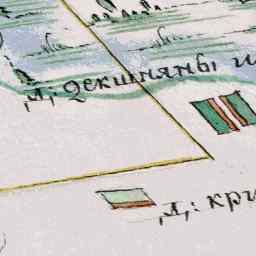 д: декшняны и
д: кри